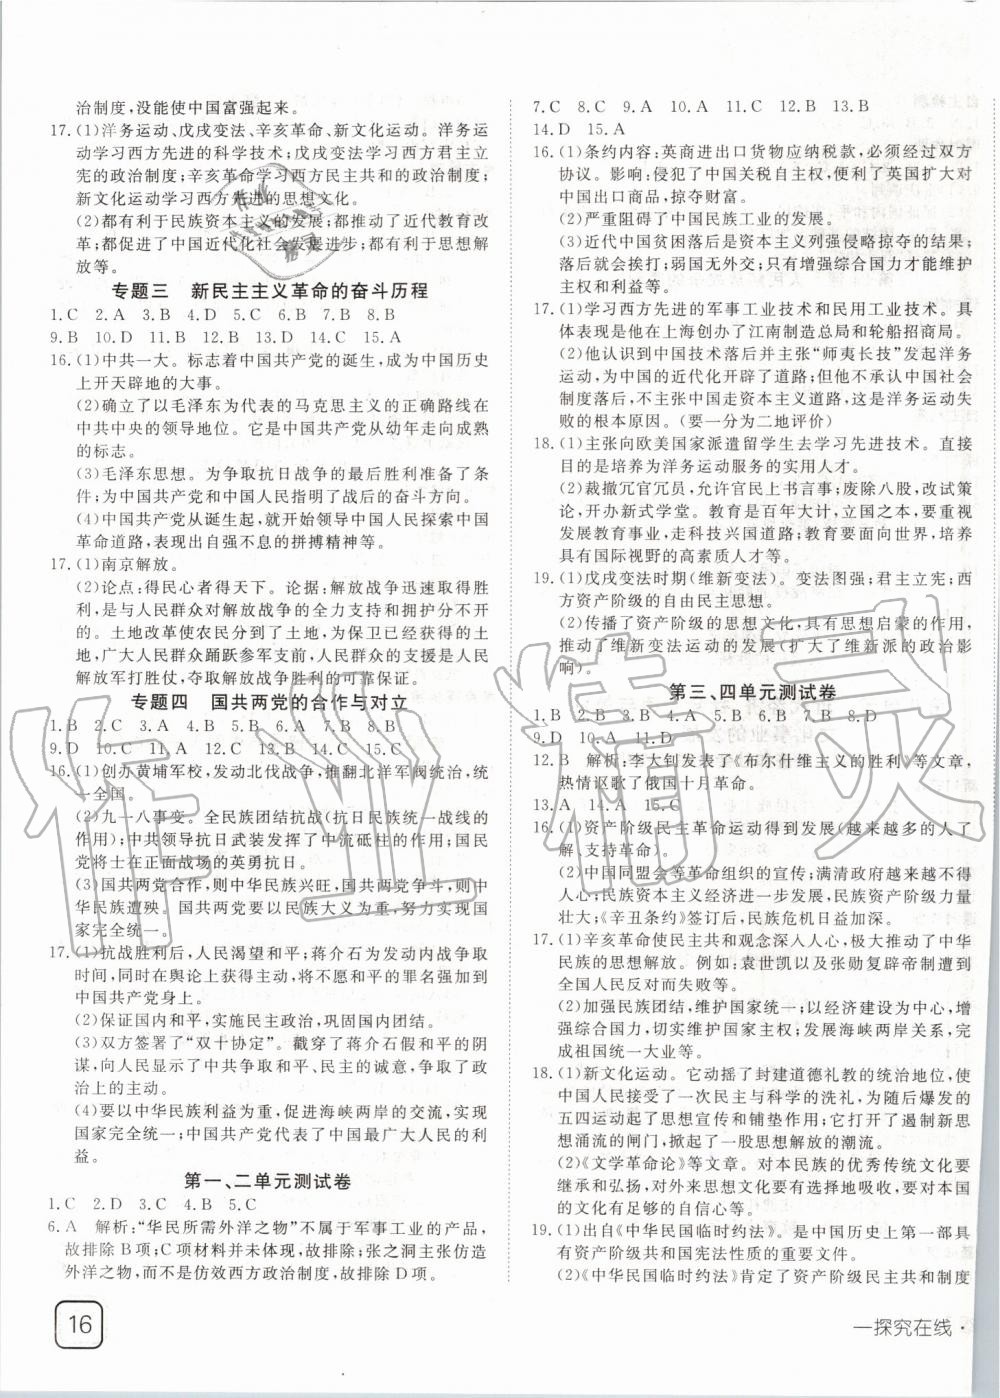 治制度,没能使中国富强起来。
17.(1)洋务运动、戊戌变法、辛亥革命、新文化运动。洋务运
动学习西方先进的科学技术;戊戌变法学习西方君主立
宪的政治制度;辛亥革命学习西方民主共和的政治制度;
新文化运动学习西方先进的思想文化。
(2)都有利于民族资本主义的发展;都推动了近代教育改
革;都促进了中国近代化社会发展进步;都有利于思想解
放等。
专题三 新民主主义革命的奋斗历程
1.C 2.A 3.B 4.D 5.C 6.B 7.B 8.B
9.B 10.D 11.D 12.B 13.C 14.D 15.A
16.(1)中共一大。标志着中国共产党的诞生,成为中国历史
上开天辟地的大事。
(2)确立了以毛泽东为代表的马克思主义的正确路线在
中共中央的领导地位。它是中国共产党从幼年走向成熟
的标志。
(3)毛泽东思想。为争取抗日战争的最后胜利准备了条
件;为中国共产党和中国人民指明了战后的奋斗方向。
(4)中国共产党从诞生起,就开始领导中国人民探索中国
革命道路,表现出自强不息的拼搏精神等。
17.(1)南京解放。
(2)论点:得民心者得天下。论据:解放战争迅速取得胜
利,是与人民群众对解放战争的全力支持和拥护分不开
的。土地改革使农民分到了土地,为保卫已经获得的土
地,广大人民群众踊跃参军支前,人民群众的支援是人民
解放军打胜仗,夺取解放战争胜利的可靠保证。
专题四 国共两党的合作与对立
1.B 2.C 3.A 4.B 5.A 6.B 7.B 8.B
9.D 10.C 11.D 12.C 13.A 14.C 15.C
16.(1)创办黄埔军校,发动北伐战争,推翻北洋军阀统治,统
一全国。
(2)九一八事变。全民族团结抗战(抗日民族统一战线的
作用);中共领导抗日武装发挥了中流砥柱的作用;国民
党将士在正面战场的英勇抗日。
(3)国共两党合作,则中华民族兴旺,国共两党对抗,则中
华民族遭殃。国共两党要以民族大义为重,努力实现国
家完全统一。
17.(1)抗战胜利后,人民渴望和平;蒋介石为发动内战争取
时间,同时在舆论上获得主动,将不愿和平的罪名强加到
中国共产党身上。
(2)保证国内和平,实施民主政治,巩固国内团结。
(3)双方签署了“双十协定”。戳穿了蒋介石假和平的阴
谋,向人民显示了中共争取和平、民主的诚意,争取到了政
治上的主动。
(4)要以中华民族利益为重,促进海峡两岸的交流,实现
国家完全统一;中国共产党代表了中国最广大人民的利
益。
第一、二单元测试卷
1.C 2.D 3.C 4.B 5.C
6.A 解析:“华民所需外洋之物”不属于军事工业的产品,
故排除B项;C项材料并未体现,故排除;张之洞主张仿造
外洋之物,而不是仿效西方政治制度,故排除D项。
16
7.C 8.C 9.A 10.A 11.C 12.B 13.B
14.D 15.A
16.(1)条约内容:英商进出口货物应纳税款,必须经过双方
协议。影响:侵犯了中国关税自主权,便利了英国扩大对
中国出口商品,掠夺财富。
(2)严重阻碍了中国民族工业的发展。
(3)近代中国贫困落后是资本主义列强侵略掠夺的结果;
落后就要挨打;弱国无外交;只有增强综合国力才能维护
主权和利益等。
17.(1)学习西方先进的军事工业技术和民用工业技术。具
体表现是他在上海创办了江南制造总局和轮船招商局。
(2)他认识到中国技术落后并主张“师夷长技”发起洋务
运动,为中国的近代化开辟了道路;但他不承认中国社会
制度落后,不主张中国走资本主义道路,这是洋务运动失
败的根本原因。(要一分为二地评价)
18.(1)主张向欧美国家派遣留学生去学习先进技术。直接
目的是培养为洋务运动服务的实用人才。
(2)裁撤冗官冗员,允许官民上书言事;废除八股,改试策
论,开办新式学堂。教育是百年大计,立国之本,要重视
发展教育事业,走科技兴国道路;教育要面向世界,培养
具有国际视野的高素质人才等。
19.(1)戊戌变法时期(维新变法)。变法图强;君主立宪;西
方资产阶级的自由民主思想。
(2)传播了资产阶级的思想文化,具有思想启蒙的作用,
推动了维新变法运动的发展(扩大了维新派的政治影
响)。
第三、四单元测试卷
1.B 2.B 3.B 4.C 5.A 6.D 7.B 8.D
9.D 10.A 11.D
12.B 解析:李大钊发表了《布尔什维主义的胜利》等文章,
热情讴歌了俄国十月革命。
13.A 14.A 15.C
16.(1)资产阶级民主革命运动得到发展(越来越多的人了
解、支持革命)。
(2)中国同盟会等革命组织的宣传;满清政府越来越不得
人心;民族资本主义经济进一步发展,民族资产阶级力量
壮大;《辛丑条约》签订后,民族危机日益加深。
17.(1)辛亥革命使民主共和观念深入人心,极大推动了中华
民族的思想解放。例如:袁世凯以及张勋复辟帝制遭到
全国人民反对而失败等。
(2)加强民族团结,维护国家统一;以经济建设为中心,增
强综合国力,切实维护国家主权;发展海峡两岸关系,完
成祖国统一大业等。
18.(1)新文化运动。它动摇了封建道德礼教的统治地位,使
中国人民接受了一次民主与科学的洗礼,为随后爆发的
五四运动起了思想宣传和铺垫作用;它打开了遏制新思
想涌流的闸门,掀起了一股思想解放的潮流。
(2)《文学革命论》等文章。对本民族的优秀传统文化要
继承和弘扬,对外来文化要有选择地吸收,要对本国
的文化有足够的自信心等。
19.(1)出自《中华民国临时约法》。是中国历史上第一部具
有资产阶级共和国宪法性质的重要文献。
(2)《中华民国临时约法》肯定了资产阶级民主共和制度
一探究在线·
作业精灵